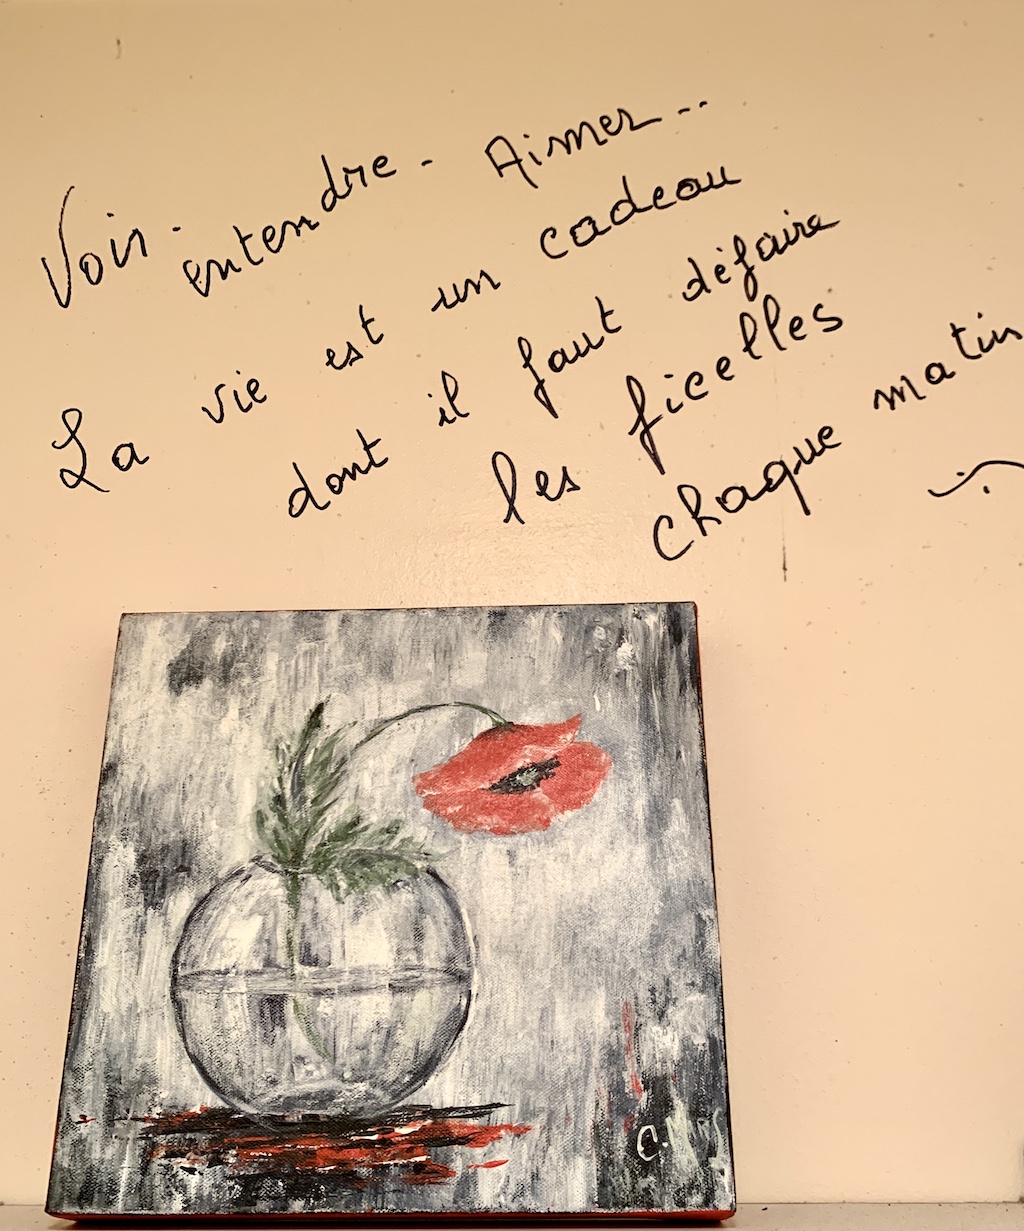 Voir. entendre. Aimer..
La vie est un cadeau
dont il faut défaire
les ficelles
chaque matin
C.